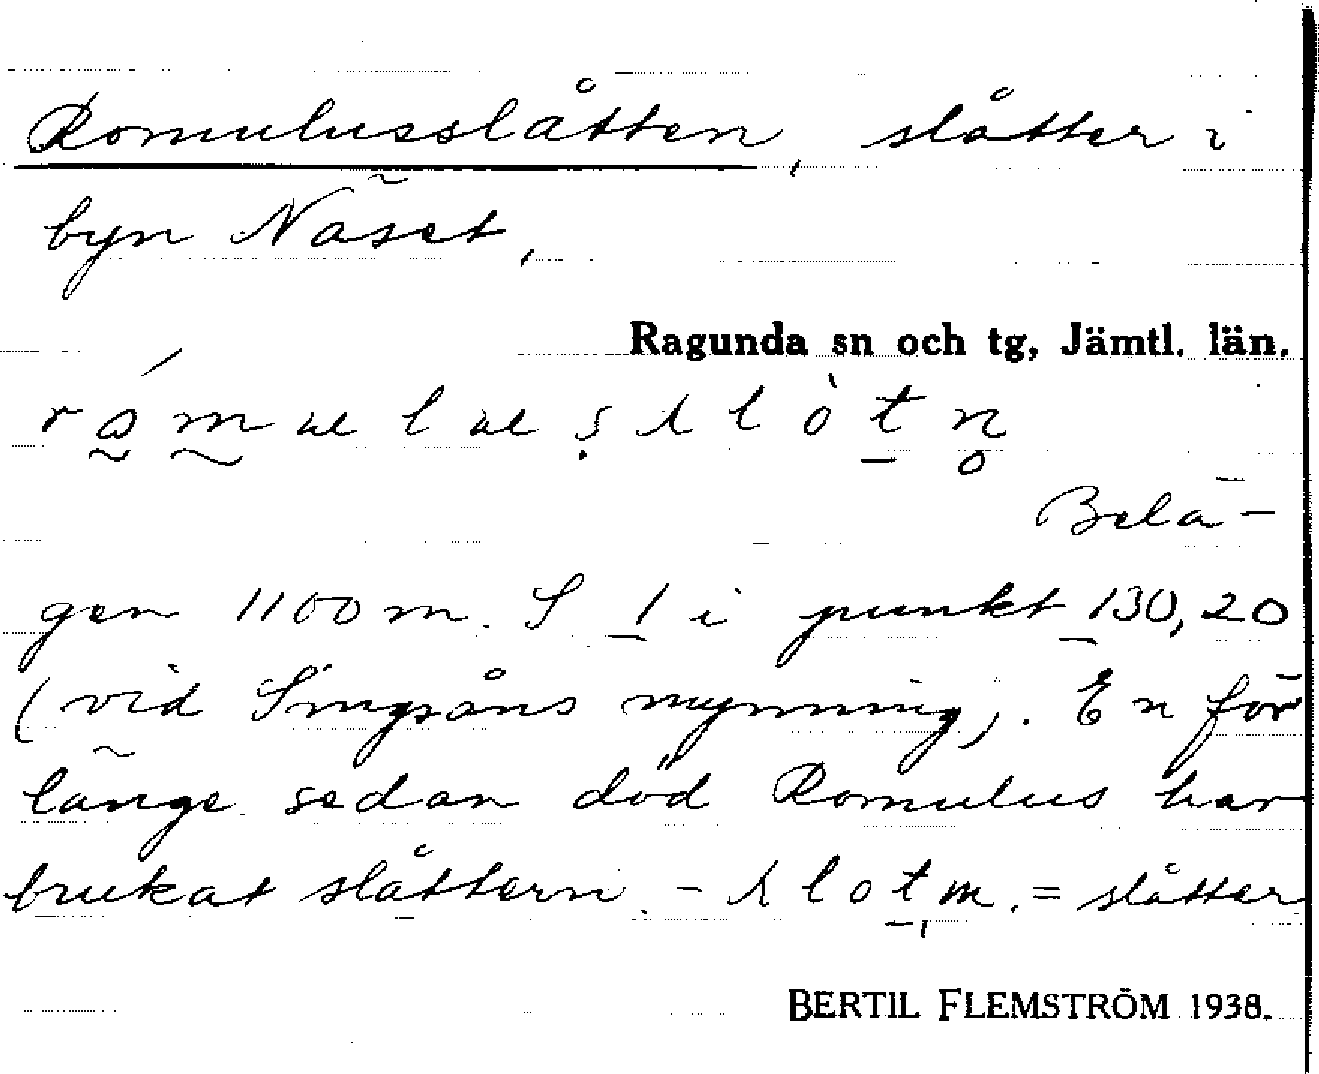 Romulusslåtten, slåtter i
byn Näset,
Ragunda sn och tg, Jämtl. län.
Belä-
gen 1100 m. S 1 i punkt 130,20
(vid Singsåns mynning). En för
länge sedan död Romulus har
brukat slåttern. - = slåtter
BERTIL FLEMSTRÖM 1938.